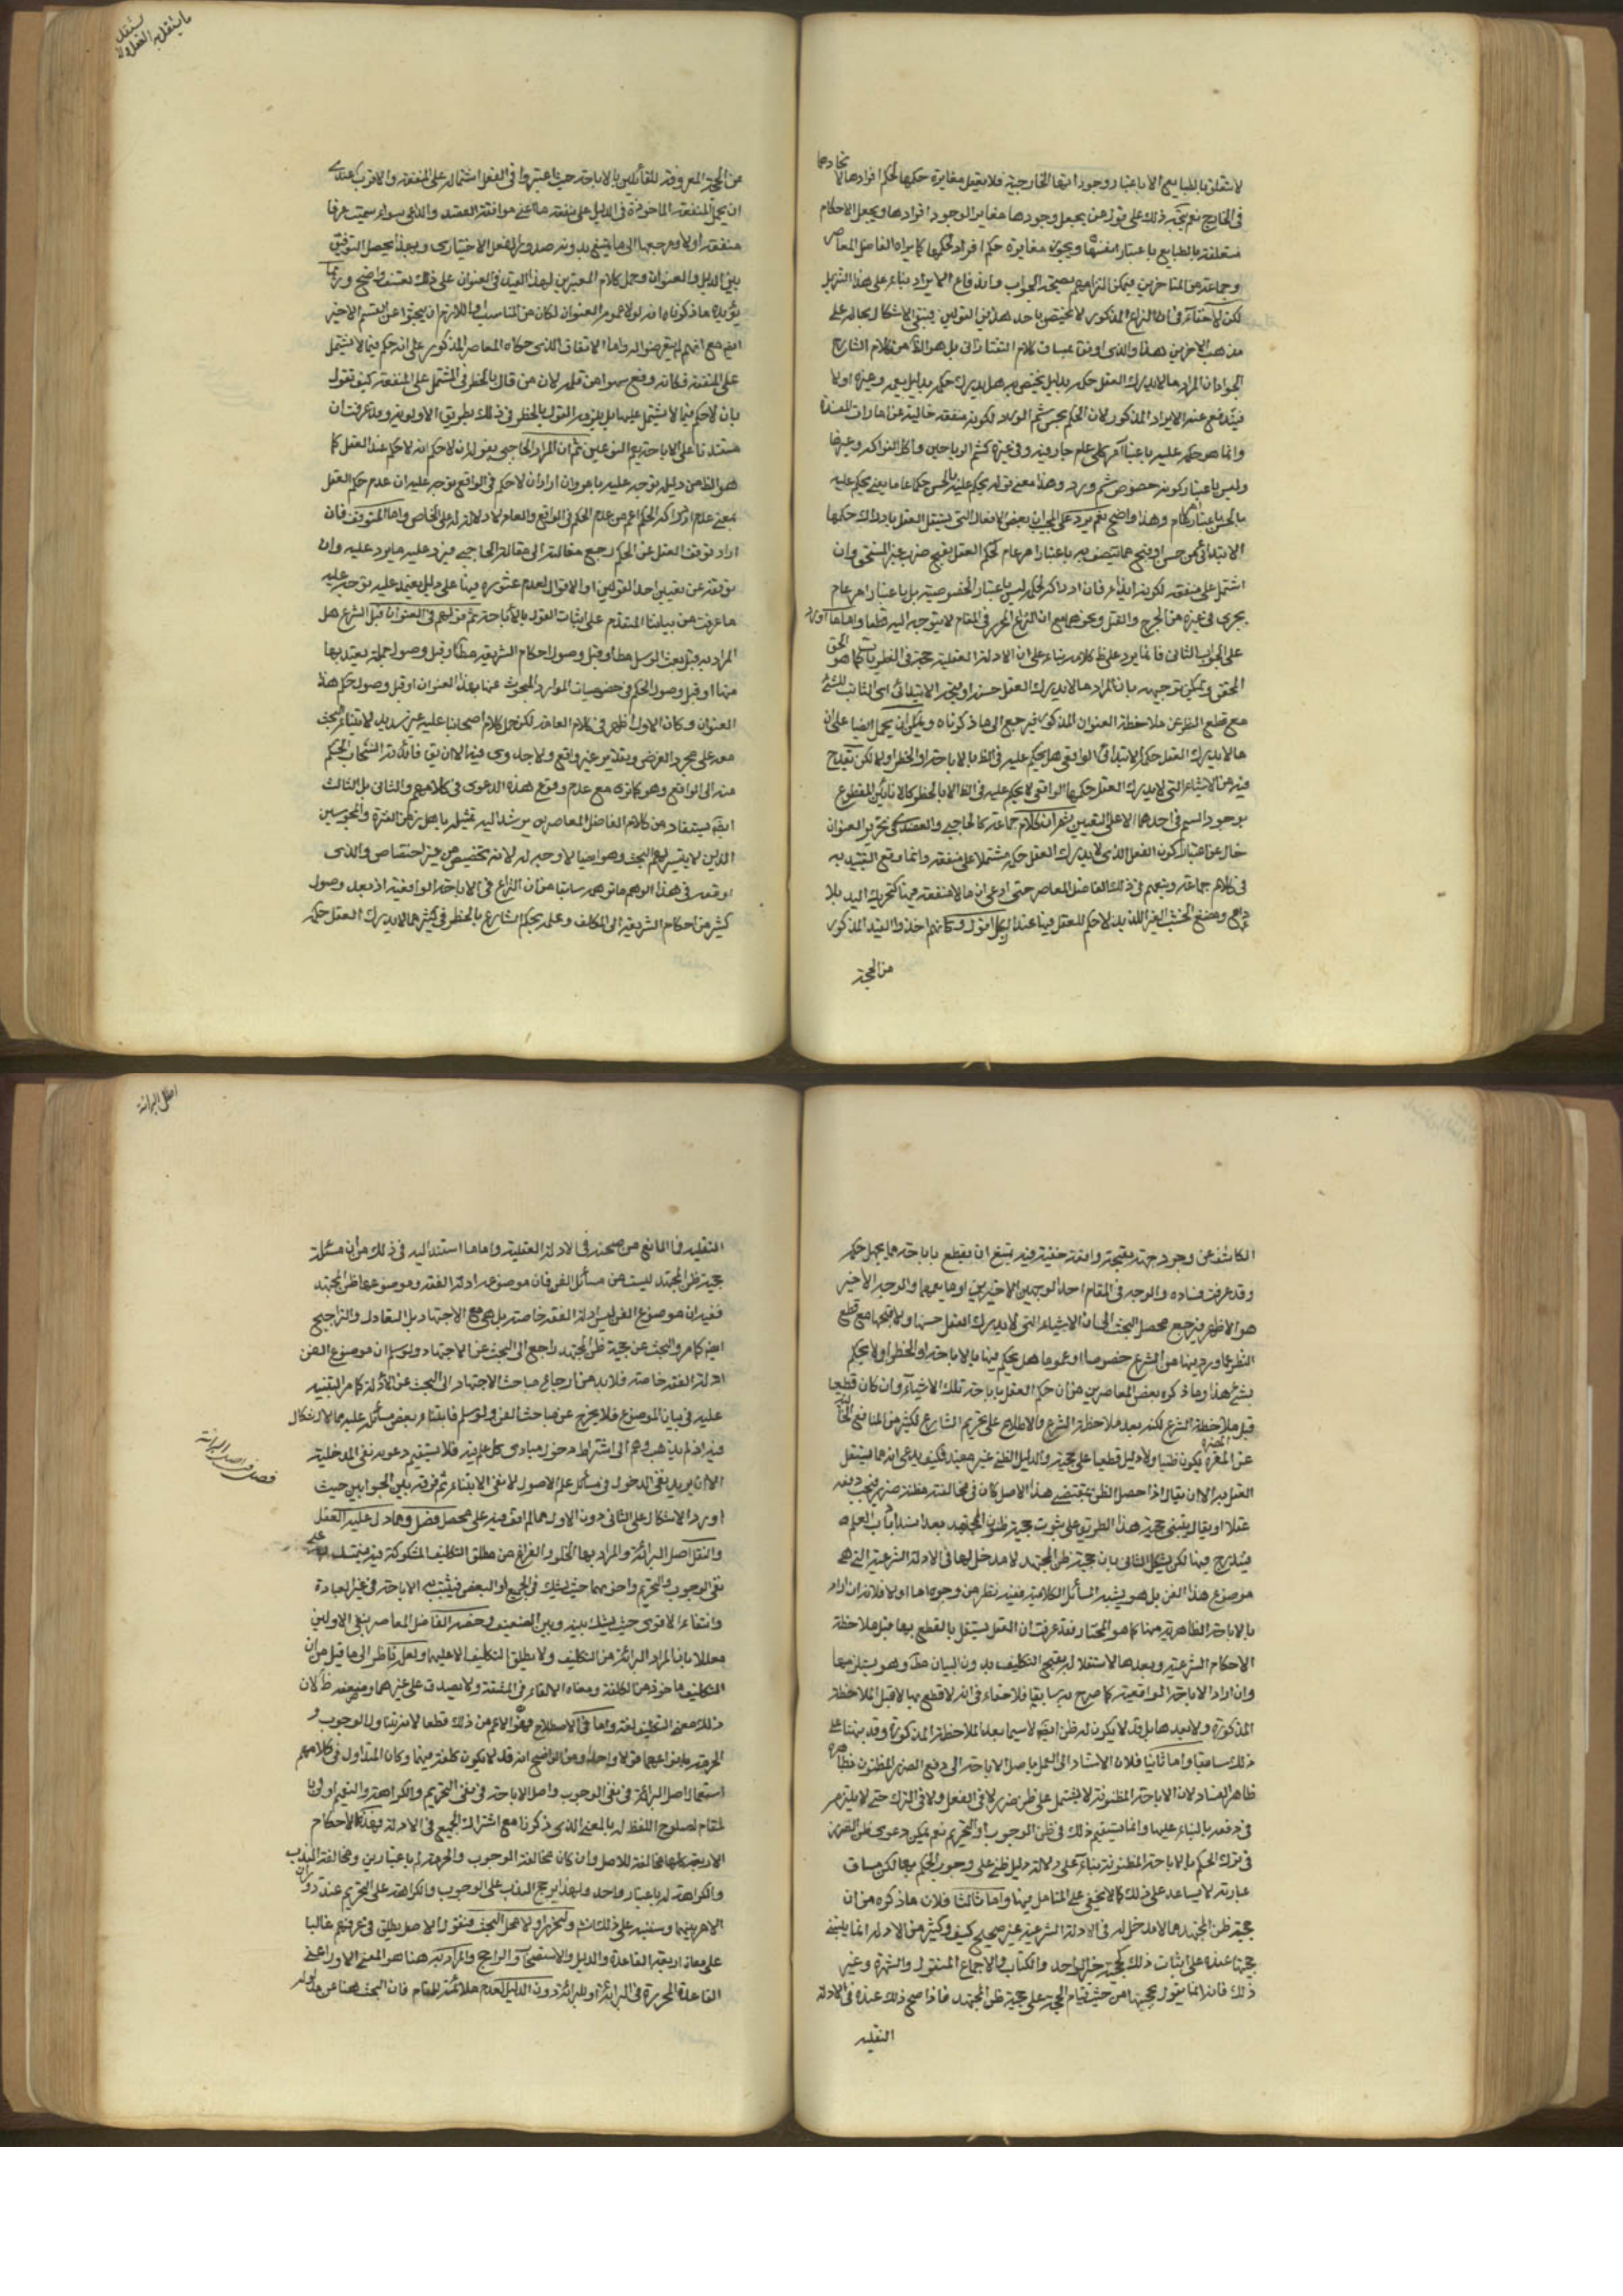 لا تعلق بالطبايع الا باعتبار وجوداتها الخارجية فلا يعقل مغايرة حكمها لحكم افرادها لاتحادهما
في الخارج نعم يتجه ذلك على قول من يجعل وجودها مغاير الوجود افرادها ويجعل الاحكام
متعلقة بالطبايع باعتبار انفسها ويجوز مغايرة حكم افراد لحكمها كما يراه الفاضل المعاصر
وجماعة من المتاخرين فيمكن التزامهم بصحة الجواب واندفاع الايراد بناء على هذا التنزيل
لكن لا خفاء في ان النزاع المذكور لا يختص باحد هذين القولين فيبقى الاشكال بحاله على
مذهب الاخرين هذا والذي اوفق بمساق كلام التفتازاني بل هو الظ من كلام الشارح
الجواد ان المراد ما لا يدرك العقل حكمه بدليل يختص به هل يدرك حكمه بدليل يعمه وغيره اولا
فيندفع عنه الايراد المذكور لان الحكم بحسن شم الورد لكونه منفعة خالية عن امارات المفسدة
وانما هو حكم عليه باعتبار امر كلي عام جار فيه وفي غيره كشم الرياحين واكل الفواكه وغيرها
وليس باعتبار كونه خصوص شم ورد وهذا معنى قوله يحكم عليه بالحسن حكما عاما يعني يحكم عليه
بالحسن باعتبار امر عام وهذا واضح نعم يرد على المجيب ان بعض الافعال التي يستقل العقل بادراك حكمها
الابتدائي من حسن او قبح مما يتصف به باعتبار امر عام كحكم العقل بقبح ضرب غير المستحق وان
اشتمل على منفعة لكونه ايذاء فان ادراكه لحكمه ليس باعتبار الخصوصية بل باعتبار امر عام
يجري في غيره من الجرح والقتل ونحوهما مع ان النزاع المحرر في المقام لا يتوجه اليه قطعا واما ما اورده
على الجواب الثاني فانما يرد على ظ كلامه بناء على ان الادلة العقلية حجة في النظريات كما هو الحق
المحقق ويمكن توجيهه بان المراد ما لا يدرك العقل حسنه او قبحه الابتدائي اي الثابت للشيء
مع قطع النظر عن ملاحظة العنوان المذكور فيرجع الى ما ذكرناه ويمكن ان يحمل ايضا على ان
ما لا يدرك العقل حكمه الابتدائي الواقعي هل يحكم عليه في الظ بالاباحة او الحظر اولا لكن يقدح
فيه من الاشياء التي لا يدرك العقل حكمها الواقعي لا يحكم عليه في الظ الا بالحظر كالانائين المقطوع
بوجود السم في احدهما لا على التعيين ثم ان كلام جماعة كالحاجبي والعضدي في تحرير العنوان
خال عن اعتبار كون الفعل الذي لا يدرك العقل حكمه مشتملا على منفعة وانما وقع التقييد به
في كلام جماعة ونبههم في ذلك الفاضل المعاصر حتى ادعى ان ما لا منفعة فيه كتحريك اليد بلا
داع ومضغ الخشب الغير اللذيذ لا حكم للعقل فيها عند الكل اقول وكانهم اخذوا القيد المذكور
من الحجة
ما يستقل به العقل ولا يستقل
من الحجة المعروفة للقائلين بالاباحة حيث اعتبروا في الفعل اشتماله على المنفعة والاقرب عندي
ان يحمل المنفعة الماخوذة في الدليل على منفعة ما اعني موافقة القصد والداعي سواء سميت عرفا
منفعة اولا ومرجعها الى ما يمتنع بدونه صدور الفعل الاختياري وبهذا يحصل التوفيق
بين الدليل والعنوان وحمل كلام المعتبرين لهذا القيد في العنوان على ذلك تعسف واضح وربما
يؤيد ما ذكرناه انه لولا عموم العنوان لكان من المناسب او اللازم ان يبحثوا عن القسم الاخير
ايضا مع انهم لم يتعرضوا له واما الاتفاق الذي حكاه المعاصر المذكور على انه حكم فيما لا يشتمل
على المنفعة فكانه وقع سهوا من قلمه لان من قال بالحظر في المشتمل على المنفعة كيف يقول
بان لا حكم فيما لا يشتمل عليها بل يلزمه القول بالحظر في ذلك بطريق الاولوية وقد عرفت ان
مستندنا على الاباحة يعم النوعين ثم ان المراد الحاجبي بقوله ان لا حكم انه لا حكم عند العقل كما
هو الظ من دليله توجه عليه ما مر وان اراد ان لا حكم في الواقع توجه عليه ان عدم حكم العقل
بمعنى عدم ادراكه الحكم اعم من عدم الحكم في الواقع والعام لا دلالة له على الخاص واما المتوقف فان
اراد توقف العقل عن الحكم رجع مقالته الى مقالة الحاجبي فيرد عليه ما يرد عليه وان
توقفه عن تعيين احد القولين او الاقوال لعدم عثوره فيها على دليل يعتمد عليه توجه عليه
ما عرفت من بياننا المتقدم على اثبات القول بالاباحة ثم قولهم في العنوان قبل الشرع هل
المراد به قبل بعث الرسل مطلقا او قبل وصول احكام الشريعة مطلقا او قبل وصول جملة يعتد بها
منها او قبل وصول الحكم في خصوصيات الموارد المبحوث عنها بهذا العنوان او قبل وصول حكم هذا
العنوان وكان الاول اظهر في كلام العامة لكن حمل كلام اصحابنا عليه غير سديد لابتناء البحث
معه على مجرد الفرض وتقدير غير واقع ولا جدوى فيه الا ان يق فائدته انسحاب الحكم
منه الى الواقع وهو كما ترى مع عدم وقوع هذه الدعوى في كلامهم والثاني بل الثالث
ايضا يستفاد من كلام الفاضل المعاصر بل يرشد اليه تمثيله باهل زمن الفترة والمحبوسين
الذين لا يتيسر لهم البحث وهو ايضا لا وجه له لانه تخصيص من غير اختصاص والذي
اوقعه في هذا الوهم ما توهمه سابقا من ان النزاع في الاباحة الواقعية اذ بعد وصول
كثير من احكام الشريعة الى المكلف وعلمه بحكم الشارع بالحظر في كثير مما لا يدرك العقل حكمه
الكاشف عن وجود جهة مقبحة واقعة خفية فيه يمتنع ان يقطع باباحة ما يجهل حكمه
وقد عرفت فساده والوجه في المقام احد الوجهين الاخيرين او ما يعمهما والوجه الاخير
هو الاظهر فيرجع محصل البحث الى ان الاشياء التي لا يدرك العقل حسنها ولا قبحها مع قطع
النظر عما ورد فيها من الشرع خصوصا او عموما هل يحكم فيها بالاباحة او الحظر اولا يحكم
بشيء هذا وما ذكره بعض المعاصرين من ان حكم العقل باباحة تلك الاشياء وان كان قطعيا
قبل ملاحظة الشرع لكنه بعد ملاحظة الشرع والاطلاع على تحريم الشارع لكثير من المنافع الخالية
عن المضرة يكون ظنيا ولا دليل قطعيا على حجيته والدليل الظني غير مفيد فكيف يدعى انه مما يستقل
العقل به الا ان يقال اذا حصل الظن بمقتضى هذا الاصل كان في مخالفته مظنة ضرر فيجب دفعه
عقلا او يقال يبتني حجية هذا الطريق على ثبوت حجية ظنون المجتهد بعد انسداد باب العلم
فيندرج فيها لكن يشكل الثاني بان حجية ظن المجتهد لا مدخل لها في الادلة الشرعية التي هي
موضوع هذا الفن بل هو يشبه المسائل الكلامية ففيه نظر من وجوه اما اولا فلانه ان اراد
بالاباحة الظاهرية منها كما هو المختار فقد عرفت ان العقل يستقل بالقطع بها قبل ملاحظة
الاحكام الشرعية وبعدها لاستقلاله بقبح التكليف بدون البيان مطلقا وهو يستلزمها
وان اراد الاباحة الواقعية كما صرح به سابقا فلا خفاء في انه لا قطع بها لا قبل الملاحظة
المذكورة ولا بعدها بل قد لا يكون له ظن ايضا لا سيما بعد الملاحظة المذكورة وقد بينا على
ذلك سابقا واما ثانيا فلان الاستناد الى العمل باصل الاباحة الى دفع الضرر المظنون
ظاهر الفساد لان الاباحة المظنونة لا يشتمل على ظن ضرر لا في الفعل ولا في الترك حتى لا يلتزم
في دفعه بالبناء عليها وانما يستقيم ذلك في ظن الوجوب او التحريم نعم يمكن دعوى ظن الضرر
في ترك الحكم بالاباحة المظنونة بناء على دلالة دليل ظني على وجوب الحكم بها لكن مساق
عبارته لا يساعد على ذلك كما لا يخفى على المتامل فيها واما ثالثا فلان ما ذكره من ان
حجية ظن المجتهد مما لا مدخل له في الادلة الشرعية غير صحيح كيف وكثير من الادلة انما يبتني
حجيتها عنده على اثبات ذلك كحجية خبر الواحد والكتاب والاجماع المنقول والشهرة وغير
ذلك فانه انما يقول بحجيتها من حيث قيام الحجة على حجية ظن المجتهد فاذا صح ذلك عنده في الادلة
النقلية
اصل البرائة
النقلية فما المانع من صحته في الادلة العقلية واما ما استند اليه في ذلك من ان مسئلة
حجية ظن المجتهد ليست من مسائل الفن فان موضوعه ادلة الفقه وموضوعها ظن المجتهد
ففيه ان موضوع الفن ليس ادلة الفقه خاصة بل هي مع الاجتهاد بل التعادل والتراجيح
ايضا كما مر والبحث عن حجية ظن المجتهد راجع الى البحث عن الاجتهاد ولو سلم ان موضوع الفن
ادلة الفقه خاصة فلا بد من ارجاع مباحث الاجتهاد الى البحث عن الادلة كما مر التنبيه
عليه في بيان الموضوع فلا يخرج عن مباحث الفن ولو سلم فابتناء بعض مسائل عليه مما لا اشكال
فيه اذ لم يذهب وهم الى اشتراط دخول مبادي كل علم فيه فلا يستقيم دعوى نفي المدخلية
الا ان يريد نفي الدخول في مسائل علم الاصول لا نفي الابتناء ثم فرقه بين الجوابين حيث
اورد الاشكال على الثاني دون الاول مما لم اقف فيه على محصل فصل ومما دل عليه العقل
فصل في اصل البرائة
والنقل اصل البرائة والمراد بها الخلو والفراغ من مطلق التكليف المشكوكة فيه
نفي الوجوب والتحريم واخويهما حيث يشك في الجميع او البعض فيثبت به الاباحة في غير العبادة
وانتفاء الاقوى حيث يشك بينه وبين الضعيف وخصه الفاضل المعاصر بنفي الاولين
معللا بان المراد البرائة من التكليف ولا يطلق التكليف الا عليهما ولعله ناظر الى ما قيل من ان
التكليف ماخوذ من الكلفة ومعناه الالقاء في المشقة ولا يصدق على غيرهما وضعفه ظ لان
ذلك معنى التكليف لغة واما في الاصطلاح فهو الاعم من ذلك قطعا لانه يتناول الوجوب و
الحرمة بانواعهما قولا واحدا ومن الواضح انه قد لا يكون كلفة فيهما وكان المتداول في كلامهم
استعمال اصل البرائة في نفي الوجوب واصل الاباحة في نفي التحريم والكراهة والتعميم اوفق با
لمقام لصلوح اللفظ له بالمعنى الذي ذكرنا مع اشتراك الجميع في الادلة فهذه الاحكام
الاربعة كلها مخالفة للاصل وان كان مخالفة الوجوب والحرمة له باعتبارين ومخالفة الندب
والكراهة له باعتبار واحد ولهذا يرجح الندب على الوجوب والكراهة على التحريم عند دوران
الامر بينهما وسننبه على ذلك ثم لنحرر اولا محل البحث فنقول الاصل يطلق في عرفهم غالبا
على معان اربعة القاعدة والدليل والاستصحاب والراجح والمراد به هنا هو المعنى الاول اعني
القاعدة المحررة في البرائة او للبرائة دون الدليل لعدم ملائمته للمقام فان البحث هنا عن مدلوله